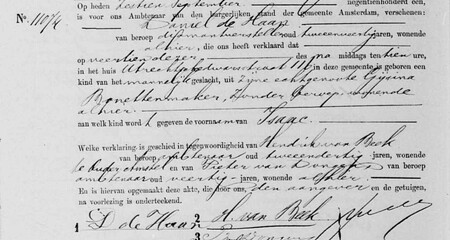 Op heden zestien September negentienhonderd een,
No. 11074 is voor ons Ambtenaar van den burgerlijken stand der Gemeente Amsterdam, verschenen:
Daniel de Haan
van beroep diamantversteller oud tweeenveertig jaren, wonende
alhier, die ons heeft verklaard dat
op veertien dezer des na middags ten tien ure,
in het huis in deze gemeente is geboren een
kind van het mannelijk geslacht, uit zijne echtgenoote Gijsina
Bonettenmaker, zonder beroep, wonende
alhier
aan welk kind wordt gegeven de voornaam van Isaac.
Welke verklaring is geschied in tegenwoordigheid van Hendrik van Beek
van beroep ambtenaar oud tweeendertig jaren, wonende
te Ouder Amstel en van Pieter van Dongen,
ambtenaar oud veertig jaren, wonende alhier.
En is hiervan opgemaakt deze akte, die door ons, den aangever en de getuigen,
na voorlezing is onderteekend.
1 D de Haan 2 H. van Beek
3